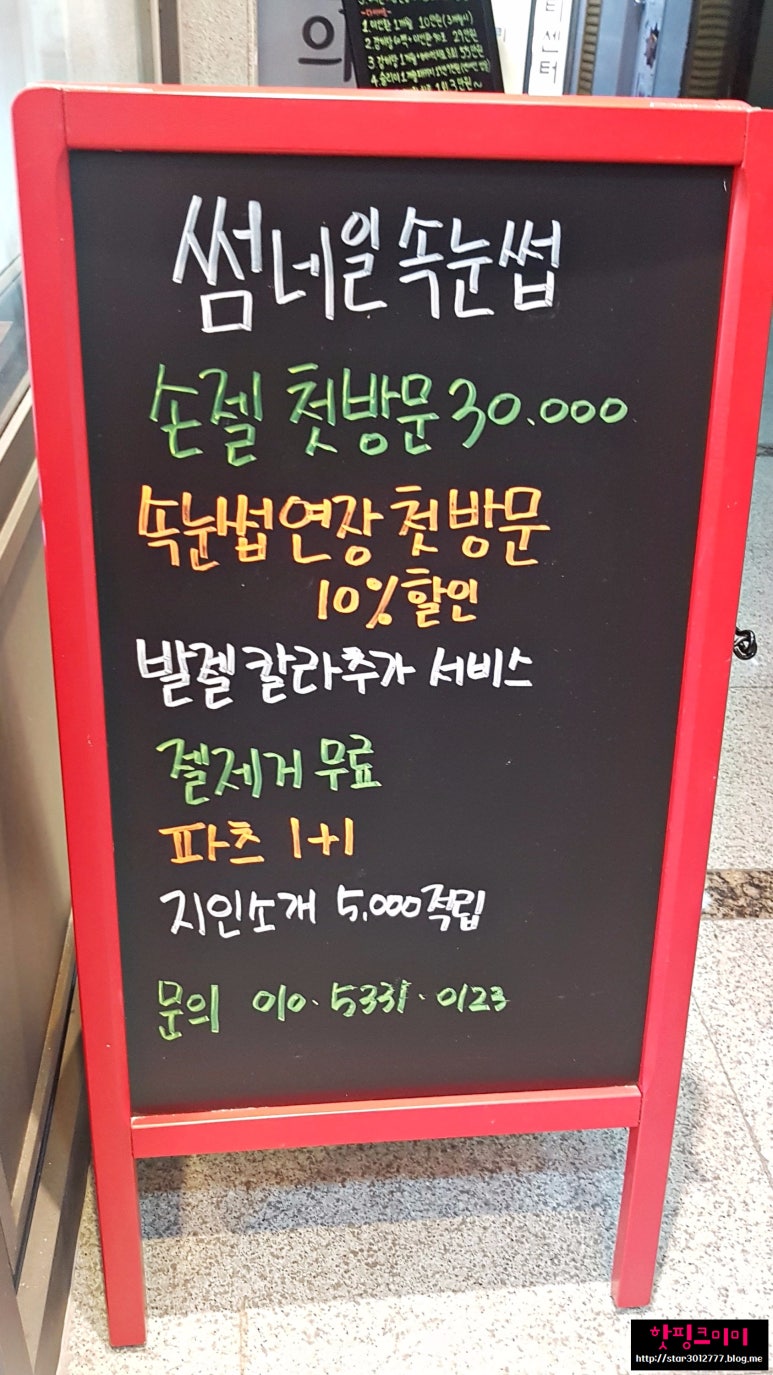 의
1개월 10만원
센터
썸네일 속눈썹
손젤 첫방문 30.000
속눈썹연장 첫방문
10% 할인
발젤 칼라추가 서비스
젤제거 무료
파츠 1+1
지인소개 5.000적립
문의 010.5331.0123
핫핑크미미
http://star3012777.blog.me